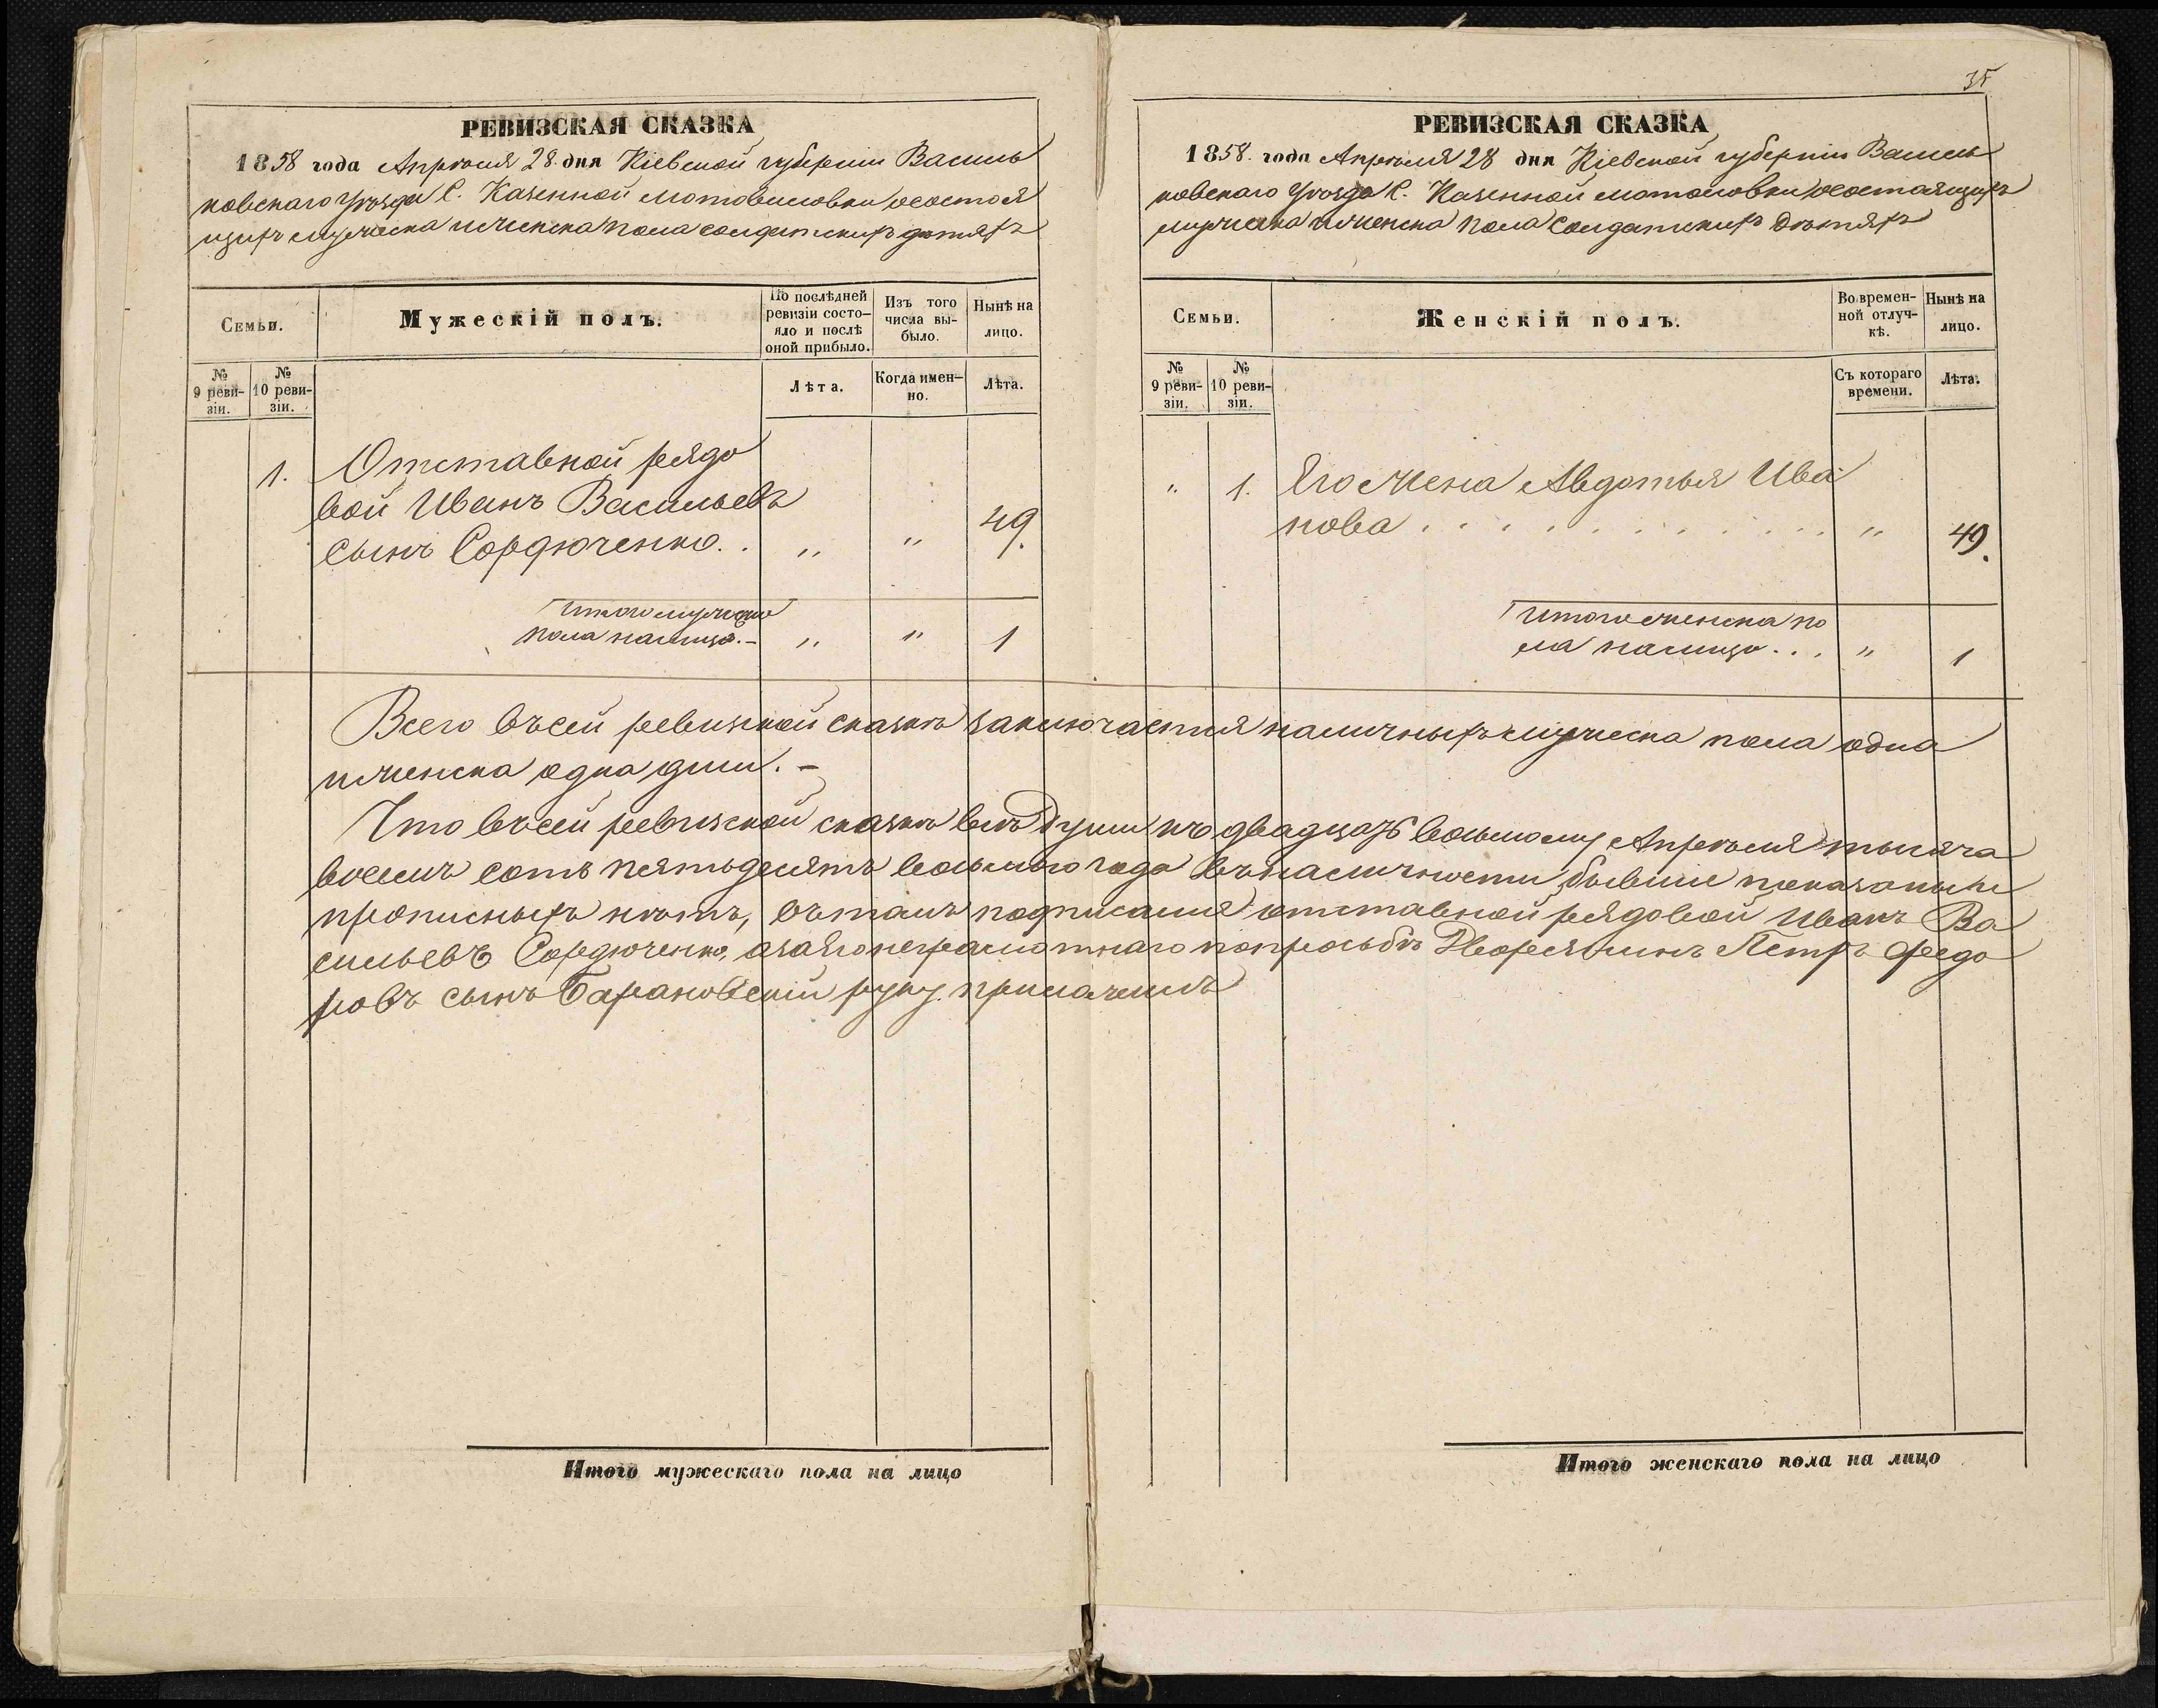 РЕВИЗСКАЯ СКАЗКА
1858 года Апрѣля 28. дня Кіевской губерніи Василь
ковскаго Уѣзда С. Казенной Мотовиловки о состоя
щихъ мужеска и женска пола солдатскихъ дѣтяхъ
Семьи.
Мужескій полъ.
По послѣдней ревизіи состо-
яло и послѣ
оной прибыло.
Изъ того
числа вы-
было.
Нынѣ на
лицо.
№
9 реви-
зіи.
№
10 реви-
зіи.
Лѣта.
Когда имен-
но.
Лѣта.
1. Отставной рядо
вой Иванъ Васильевъ
сынъ Сордюченко. . " " 49.
Итого мужеска
пола налицо. - " " 1
35
РЕВИЗСКАЯ СКАЗКА
1858. года Апрѣля 28 дня Кіевской губерніи Василь
ковскаго Уѣзда С. Казенной Мотоловки о состоящихъ
мужеска и женска пола Солдатскихъ Дѣтяхъ
Семьи.
Женскій полъ.
Во времен-
ной отлуч-
кѣ.
Нынѣ на
лицо.
№
9 реви-
зіи.
№
10 реви-
зіи.
Съ котораго
времени.
Лѣта.
" 1. Его жена Авдотья Ива
нова . . . . . . . . . . . " 49.
Итого женска по
ла налицо . . . " 1
Всего въ сей ревизкой сказкѣ заключается наличныхъ мужеска пола одна
и женска одна души. -
Что въ сей ревизской сказкѣ всѣ Души къ двадцать восьмому Апрѣля тысяча
восемъ сотъ пятьдесятъ восьмого года въ наличности бывшіе показаны и
прописныхъ нѣтъ, въ томъ подписался отставной рядовой Иванъ Ва
сильевъ Сордюченко, а за его неграмотнаго по просьбѣ Дворянинъ Петръ Федо
ровъ сынъ Барановскій руку приложилъ
Итого мужескаго пола на лицо
Итого женскаго пола на лицо